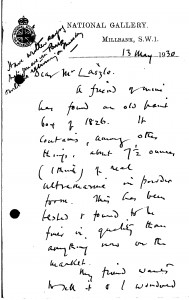 NATIONAL GALLERY.
MILLBANK, S.W.1.
13 May 1930
Dear Mr László.
A friend of mine
has found an old paint
box of 1826. It
contains, among other
things, about 7½ ounces
of real
ultramarine in powder
form. This has been
tested & found to be
finer in quality than
anything now on the
market.
My friend wants
to sell it & I wondered